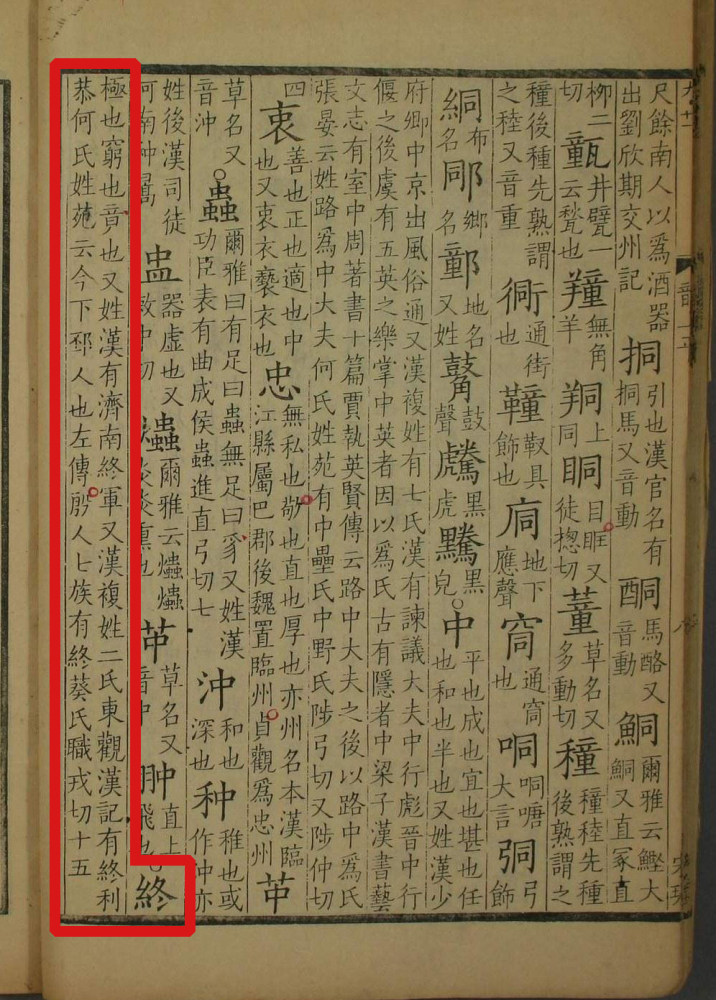 尺餘南人以爲酒器出劉欣期交州記挏引也漢官名有挏馬又音動酮馬酪又音動鮦爾雅云鰹大鮦又直冢直
柳二切井甓一云甃也䍶無角羊上同眮目眶又徒揔切蕫草名又多動切穜穜稑先種後熟謂之
穜後種先熟謂之稑又音重衕通街也靫具飾也地下應聲通窻也哃哃嘡大言弓飾
絧布名鄉名地名又姓鼓聲黑虎黑皃○中平也成也宜也堪也任也和也半也又姓漢少
府卿中京出風俗通又漢複姓有七氏漢有諫議大夫中行彪晉中行偃之後虞有五英之樂掌中英者因以爲氏古有隱者中梁子漢書藝
文志有室中周著書十篇賈執英賢傳云路中大夫之後以路中爲氏張晏云姓路爲中大夫何氏姓苑有中壘氏中野氏陟弓切又陟仲切
四衷善也正也適也中也又衷衣褻衣也忠無私也敬也直也厚也亦州名本漢臨江縣屬巴郡後魏置臨州貞觀爲忠州䒤
草名又音沖○蟲爾雅曰有足曰蟲無足曰豸又姓漢功臣表有曲成侯蟲進直弓切七沖和也深也种稚也或作沖亦
姓後漢司徒河南种暠盅器虛也又敕中切爞爾雅云爞爞炎炎熏也䒤草名又音中翀直上飛也○終
極也窮也竟也又姓漢有濟南終軍又漢複姓二氏東觀漢記有終利恭何氏姓苑云今下邳人也左傳殷人七族有終葵氏職戎切十五